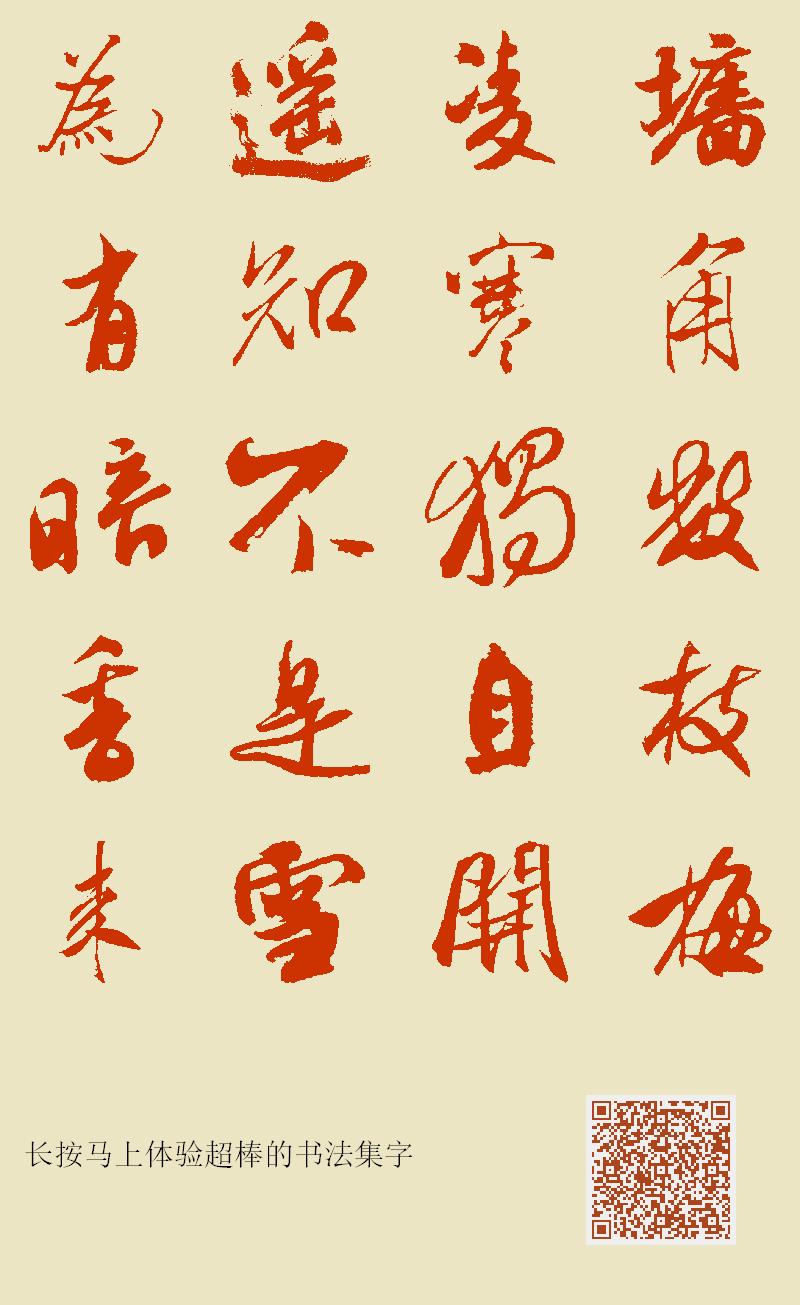 墻角數枝梅
凌寒獨自開
遥知不是雪
為有暗香来
长按马上体验超棒的书法集字